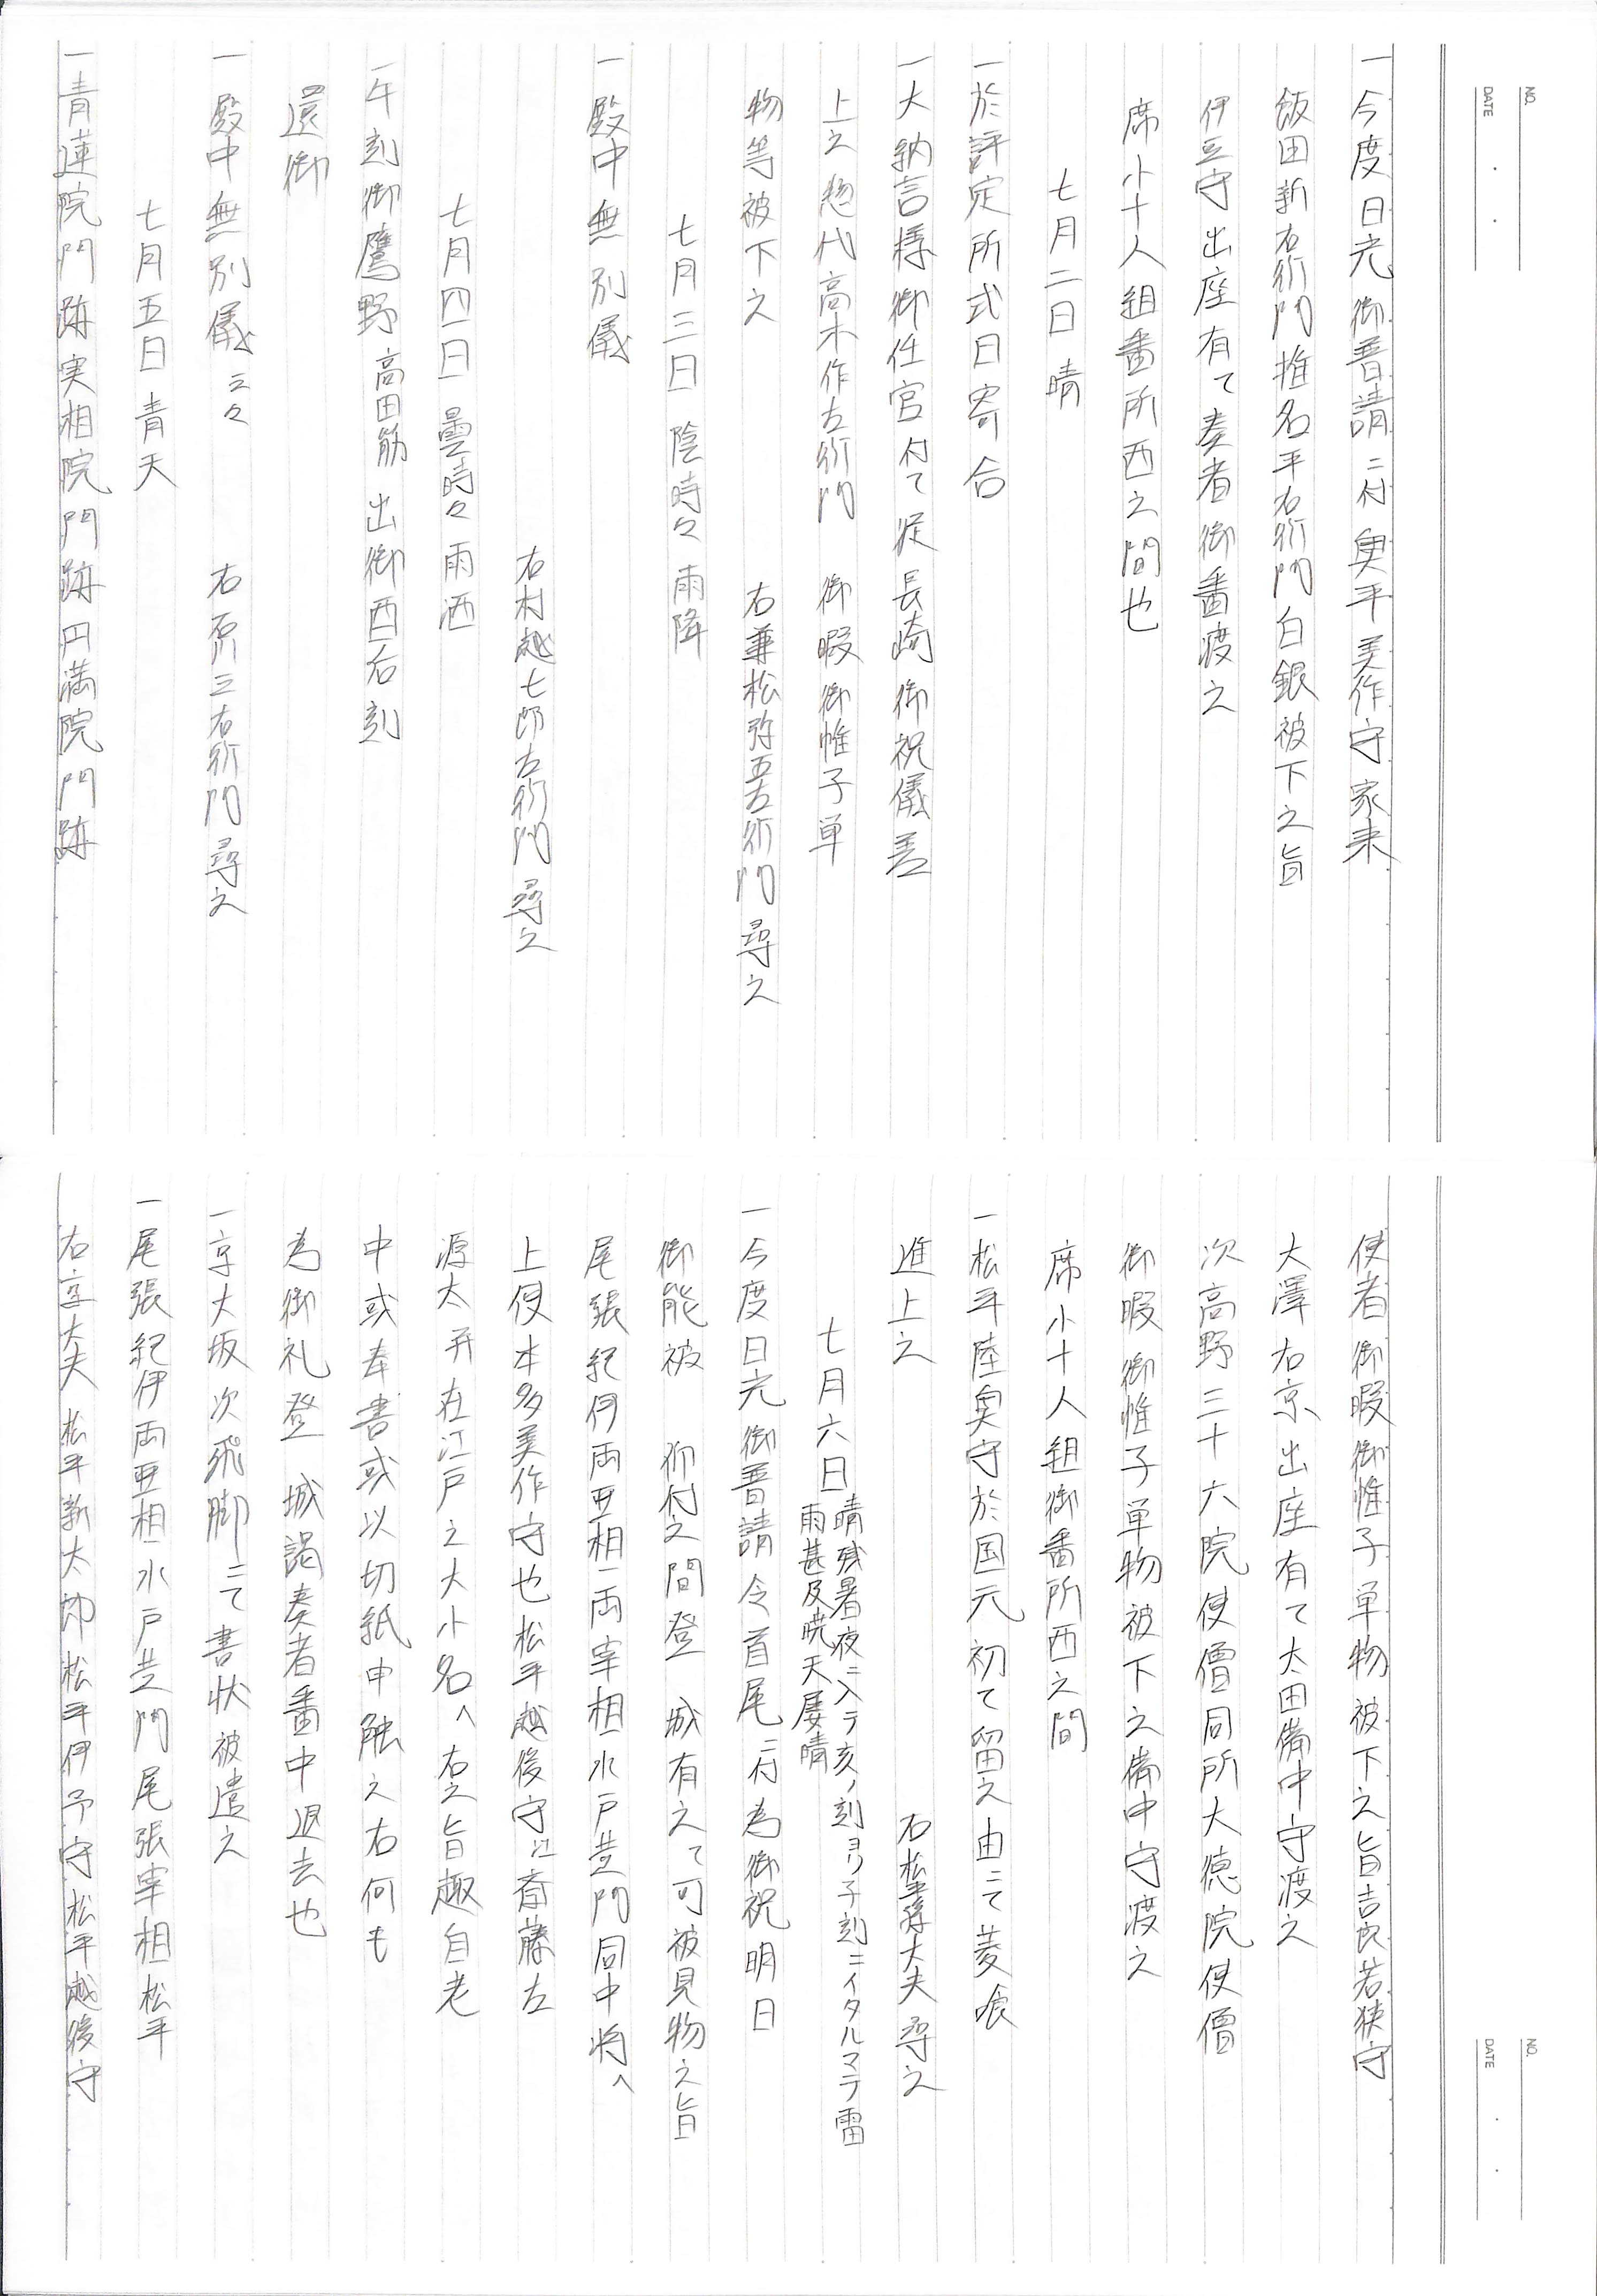 NO.
DATE
一今度日光御普請ニ付奥平美作守家来
飯田新右衛門推名平右衛門白銀被下之旨
伊豆守出座有て奏者御番渡之
席小十人組番所西之間也
七月二日 晴
一於評定所式日寄合
一大納言様御任官付て従長崎御祝儀差
上之惣代高木作左衛門 御暇御帷子単
物等被下之 右兼松弥五左衛門尋之
七月三日 陰時々雨降
一殿中無別儀
右村越七郎左衛門尋之
七月四日 曇時々雨洒
一午刻御鷹野高田筋 出御酉后刻
還御
一殿中無別儀云々 右石川三右衛門尋之
七月五日 青天
一青蓮院門跡実相院門跡円満院門跡
NO.
DATE
使者御暇御帷子単物被下之旨吉良若狭守
大澤右京出座有て太田備中守渡之
次高野三十六院使僧同所大徳院使僧
御暇御帷子単物被下之備中守渡之
席小十人組御番所西之間
一松平陸奥守於国元初て留之由ニて菱喰
進上之 右松平隼大夫尋之
七月六日 晴残暑夜ニ入テ亥ノ刻ヨリ子刻ニイタルマテ雷
雨甚及暁天屡晴
一今度日光御普請令首尾ニ付為御祝明日
御能被 仰付之間登 城有之て可被見物之旨
尾張紀伊両亜相両宰相水戸黄門同中将へ
上使本多美作守也松平越後守江斎藤左
源太并在江戸之大小名へ右之旨趣自老
中或奉書或以切紙申触之右何も
為御礼登 城謁奏者番中退去也
一京大坂次飛脚ニて書状被遣之
一尾張紀伊両亜相水戸黄門尾張宰相松平
右京大夫松平新太郎松平伊予守松平越後守